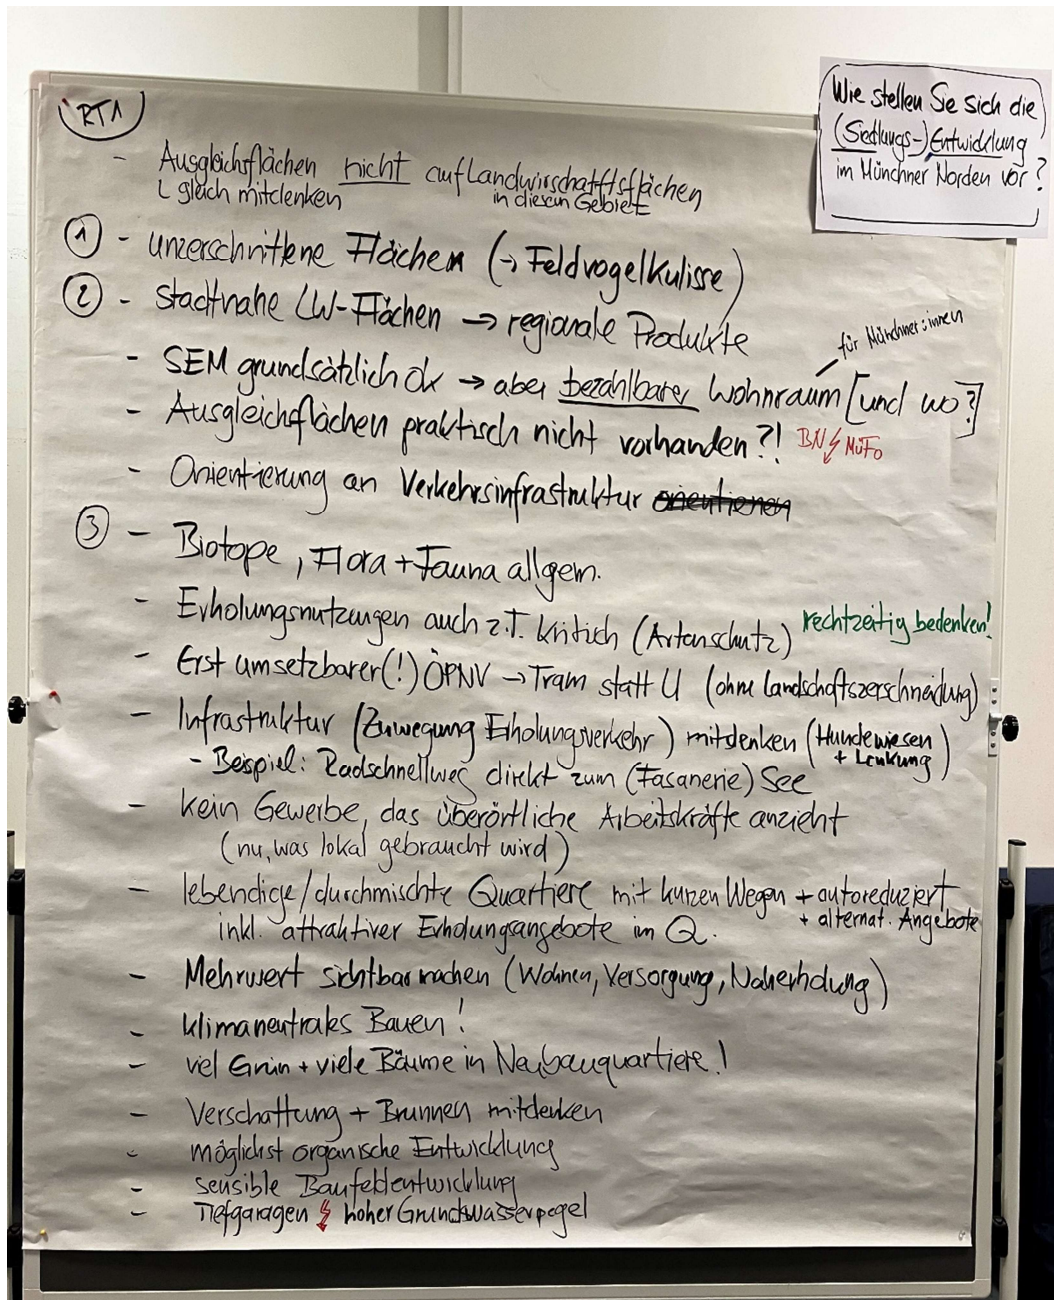 RT1
Wie stellen Sie sich die
(Siedlungs-)Entwicklung
im Münchner Norden vor?
- Ausgleichflächen nicht auf Landwirschafttsflächen
└ gleich mitdenken in diesem Gebiet
① - unzerschnittene Flächen (→ Feldvogelkulisse)
② - stadtnahe LW-Flächen → regionale Produkte
für Münchner:innen
- SEM grundsätzlich ok → aber bezahlbarer Wohnraum [und wo?]
- Ausgleichflächen praktisch nicht vorhanden?! BN ↯ MüFo
- Orientierung an Verkehrsinfrastruktur orientieren
③ - Biotope, Flora + Fauna allgem.
- Erholungsnutzungen auch z.T. kritich (Artenschutz) rechtzeitig bedenken!
- Erst umsetzbarer(!) ÖPNV → Tram statt U (ohne Landschaftszerschneidung)
- Infrastruktur (Zuwegung Erholungsverkehr) mitdenken (Hundewiesen
+ Lenkung)
- Beispiel: Radschnellweg direkt zum (Fasanerie) See
- kein Gewerbe, das überörtliche Arbeitskräfte anzieht
(nu, was lokal gebraucht wird)
- lebendige/durchmischte Quartiere mit kurzen Wegen + autoreduziert
+ alternat. Angebote
inkl. attraktiver Erholungsangebote im Q.
- Mehrwert sichtbar machen (Wohnen, Versorgung, Naherholung)
- klimaneutrales Bauen!
- viel Grün + viele Bäume in Neubauquartiere!
- Verschattung + Brunnen mitdenken
- möglichst organische Entwicklung
- sensible Baufeldentwicklung
- Tiefgaragen ↯ hoher Grundwasserpegel